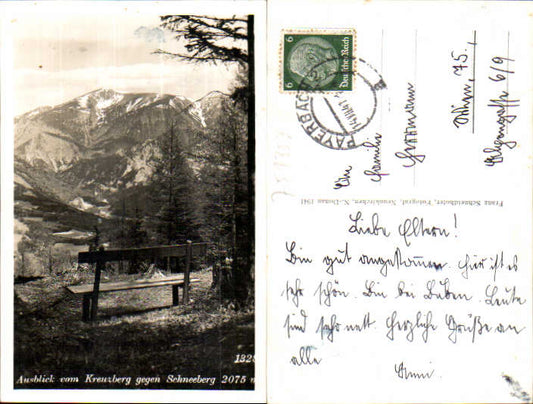 1328
Ausblick vom Kreuzberg gegen Schneeberg 2075 m
6 6
Deutsches Reich
PAYERBACH
An
Familie
Herrmann
Wien, 75.,
6/9
Franz Schneidhofer, Fotograf, Neunkirchen, N.-Donau 1941
Liebe Eltern!
Bin gut angekommen. Hier ist es
sehr schön. Bin bei lieben. Leute
sind sehr nett. Herzliche Grüße an
alle
Anni.